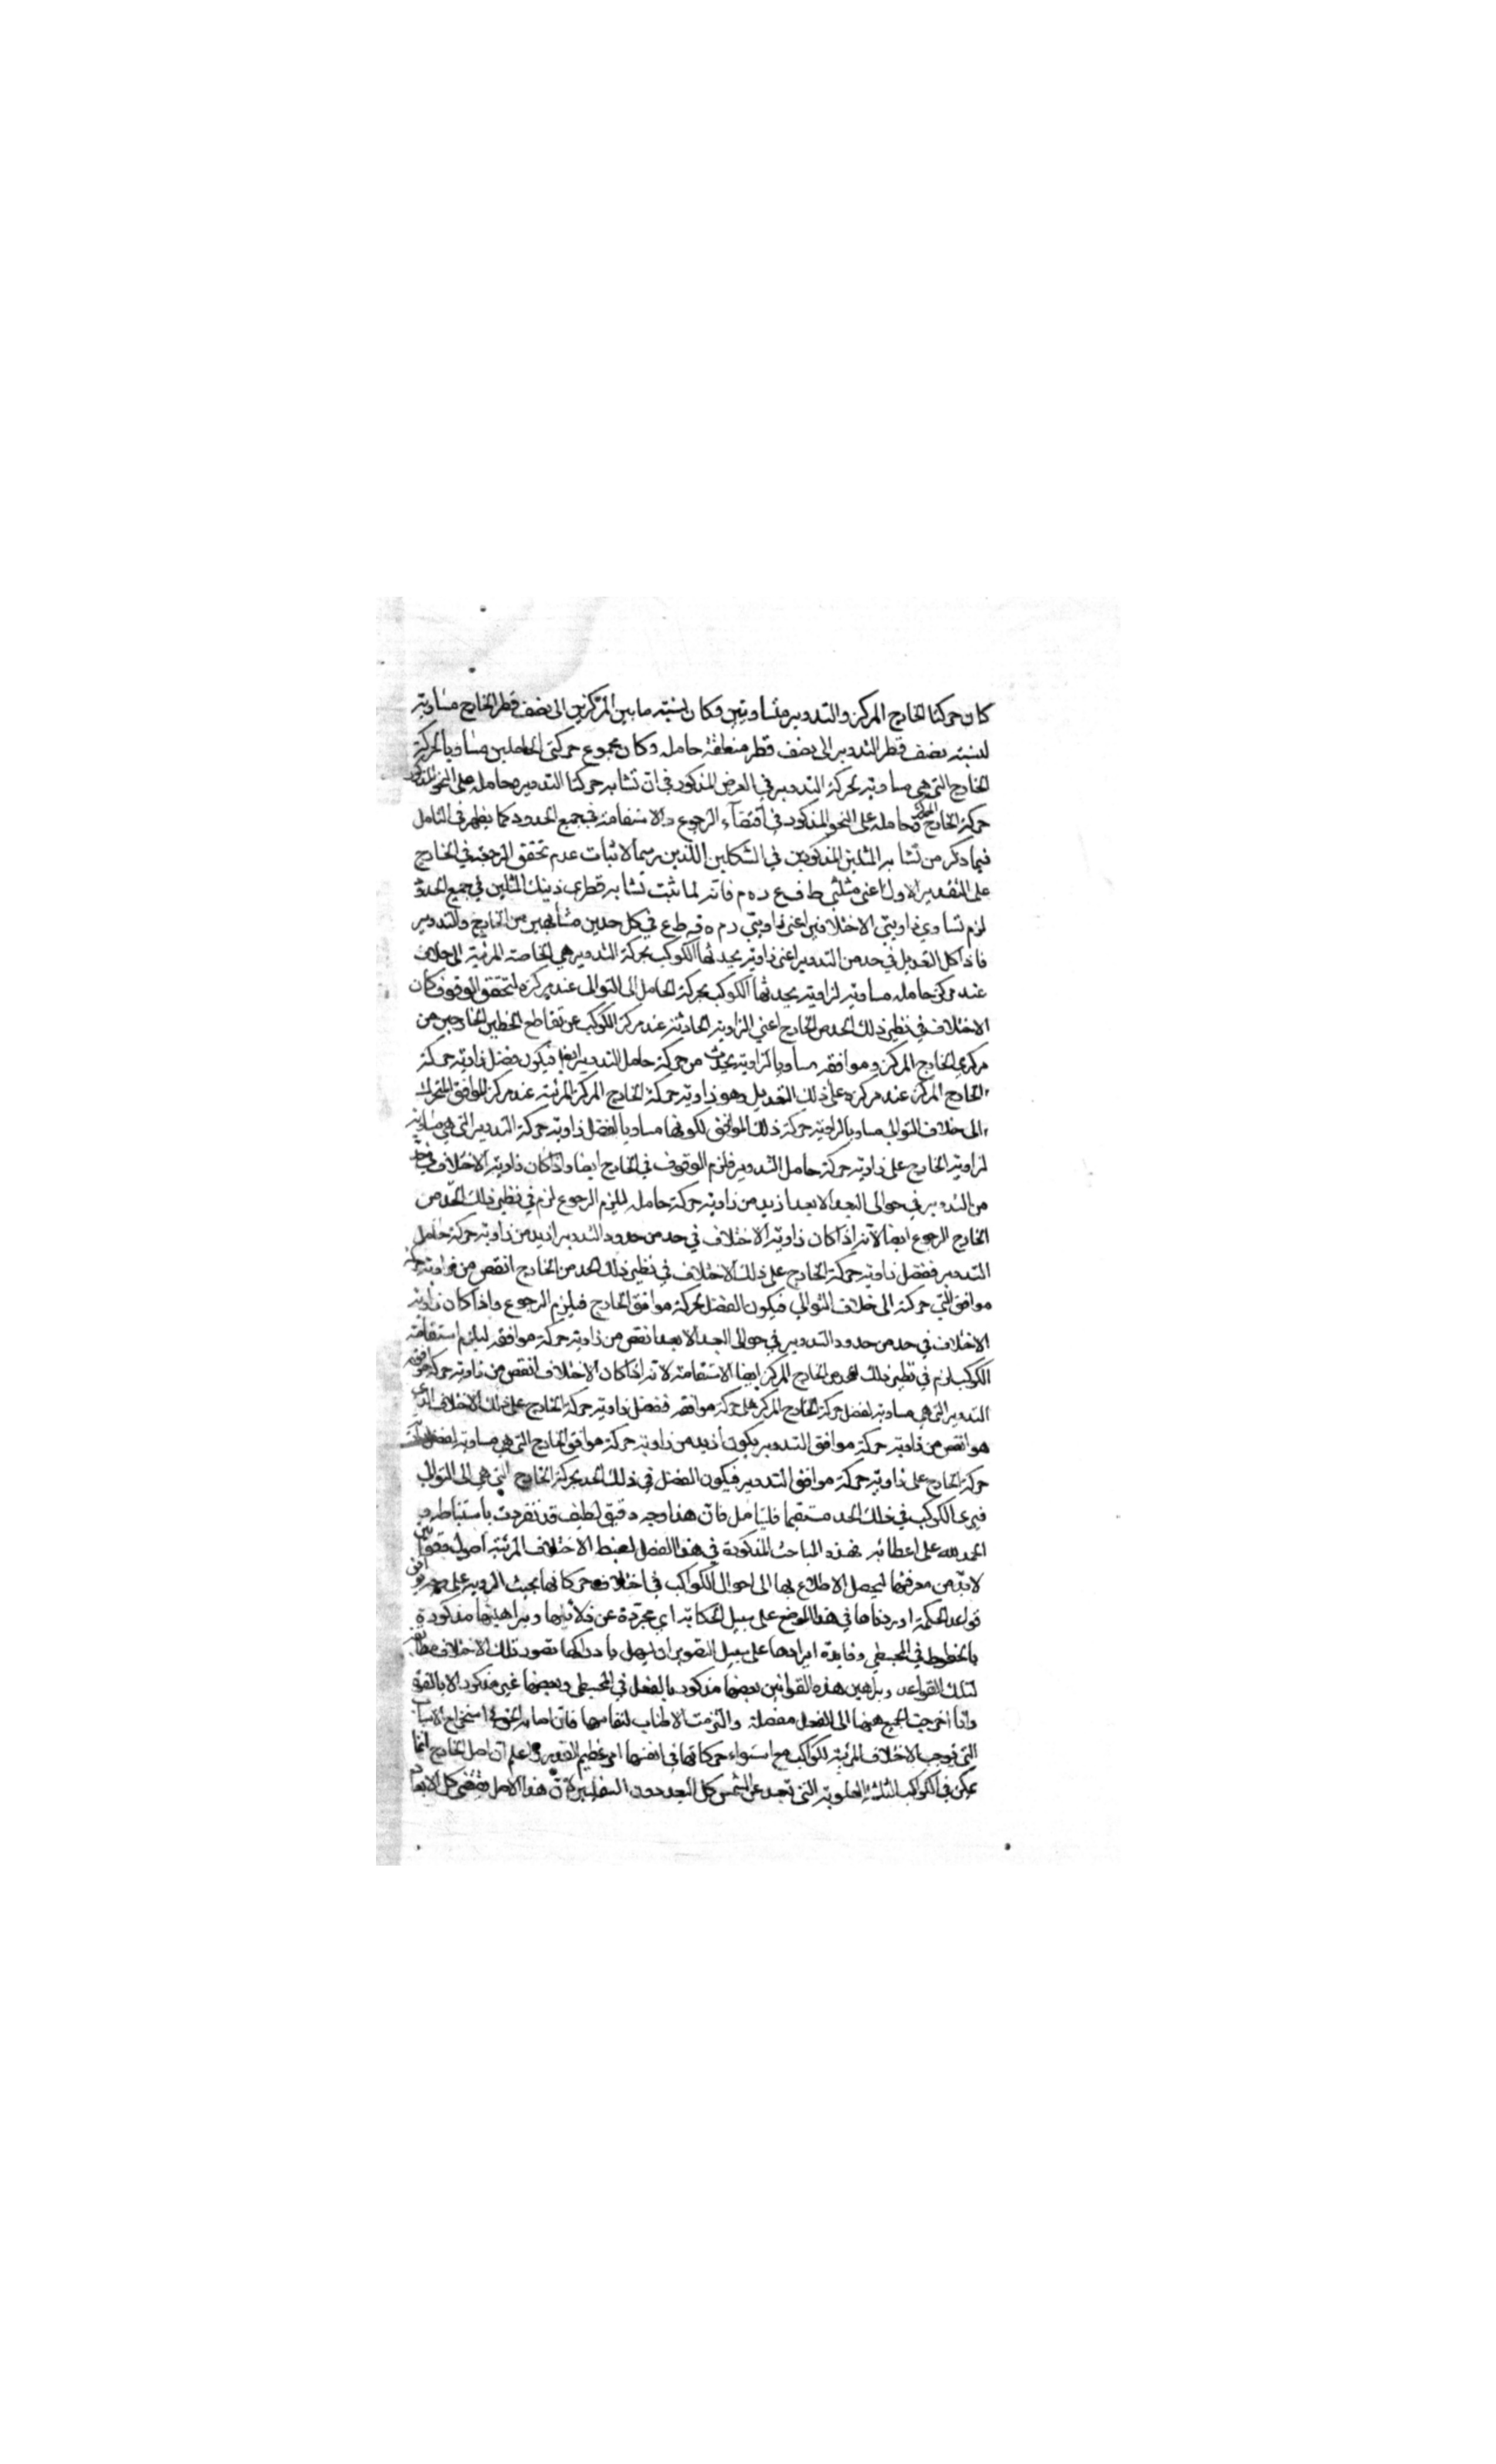 كان حركتا الخارج المركز والتدوير متساويتين وكان نسبة ما بين المركزين الى نصف قطر الخارج مساوية
لنسبة نصف قطر التدوير الى نصف قطر منطقة حامله وكان مجموع حركتي الحاملين مساويا لحركة
الخارج التي هي مساوية لحركة التدوير في العرض المذكور في ان تشابه حركتا التدوير وحامله على النحو المذكور
حركة الخارج المركز وحامله على النحو المذكور في اقتضاء الرجوع والاستقامة في جميع الحدود كما يظهر في التامل
فيما ذكر من تشابه المثلثين المذكورين في الشكلين اللذين رسما لاثبات عدم تحقق الرجعة في الخارج
على التقدير الاول اعني مثلثي ط ف ع د ه م فانه لما ثبت تشابه قطري ذينك المثلثين في جميع الحدود
لزم تساوي زاويتي الاختلافين اعني زاويتي د م ه ف ط ع في كل حدين متشابهين من الخارج والتدوير
فاذا كل التعديل في حد من التدوير اعني زاوية يحدثها الكوكب بحركة التدوير هي الخاصة المرئية الى خلاف
عند مركز حامله مساوية لزاوية يحدثها الكوكب بحركة الحامل الى التوالي عند مركزه لتحقق الوقوف كان
الاختلاف في نظير ذلك الحد من الخارج اعني الزاوية الحادثة عند مركز الكوكب عن تقاطع الخطين الخارجين من
مركزي الخارج المركز وموافقه مساويا لزاوية يحدث من حركة حامل التدوير ايضا فيكون فضل زاوية حركة
الخارج المركز عند مركزه على ذلك التعديل وهو زاوية حركة الخارج المركز المرئية عند مركز الموافق المتحرك
الى خلاف التوالي مساويا لزاوية حركة ذلك الموافق لكونها مساويا لفضل زاوية حركة التدوير التي هي مساوية
لزاوية الخارج على زاوية حركة حامل التدوير فلزم الوقوف في الخارج ايضا واذا كان زاوية الاختلاف في حد
من التدوير في حوالي البعد الابعد ازيد من زاوية حركة حامله ليلزم الرجوع لزم في نظير ذلك الحد من
الخارج الرجوع ايضا لانه اذا كان زاوية الاختلاف في حد من حدود التدوير ازيد من زاوية حركة حامل
التدوير ففضل زاوية حركة الخارج على ذلك الاختلاف في نظير ذلك الحد من الخارج انقص من زاوية حركة
موافق التي حركته الى خلاف التوالي فيكون الفضل لحركة موافق الخارج فيلزم الرجوع واذا كان زاوية
الاختلاف في حد من حدود التدوير في حوالي البعد الابعد انقص من زاوية حركة موافقه ليلزم استقامة
الكوكب لزم في نظير ذلك الحد من الخارج المركز ايضا الاستقامة لانه اذا كان الاختلاف انقص من زاوية حركة موافق
التدوير التي هي مساوية لفضل حركة الخارج المركز على حركة موافقه ففضل زاوية حركة الخارج على ذلك الاختلاف الذي
هو انقص من زاوية حركة موافق التدوير يكون ازيد من زاوية حركة موافق الخارج التي هي مساوية لفضل زاوية
حركة الخارج على زاوية حركة موافق التدوير فيكون الفضل في ذلك الحد بحركة الخارج التي هي الى التوالي
فيرى الكوكب في ذلك الحد مستقيما فليتامل فان هذا وجه دقيق لطيف قد تفردت باستنباطه و
الحمد لله على اعطائه فهذه المباحث المذكورة في هذا الفصل لضبط الاختلاف المرئية اصول وقوانين
لابد من معرفتها ليحصل الاطلاع بها الى احوال الكواكب في اختلاف حركاتها بحيث الروية على وجه يوافق
قواعد الحكمة اوردناها في هذا الموضع على سبيل الحكاية اي مجردة عن دلائلها وبراهينها مذكورة
بالخطوط في المجسطي وفايدة ايرادها على سبيل التصوير ان يسهل بادراكها تصور تلك الاختلاف مطابقة
لتلك القواعد وبراهين هذه القوانين بعضها مذكور بالفعل في المجسطي وبعضها غير مذكور الا بالقوة
وانا اخرجت الجميع ههنا الى الفعل مفصلة والتزمت الاطناب لنفاستها فان اصابة الحق في استخراج الاسباب
التي توجب الاختلاف المرئية للكواكب مع استواء حركاتها في انفسها امر عظيم القدر واعلم ان اصل الخارج انما
يمكن في الكواكب الثلثة العلوية التي تبعد عن الشمس كل البعد دون السفليين لان هذا الاصل يقتضي كل الابعاد